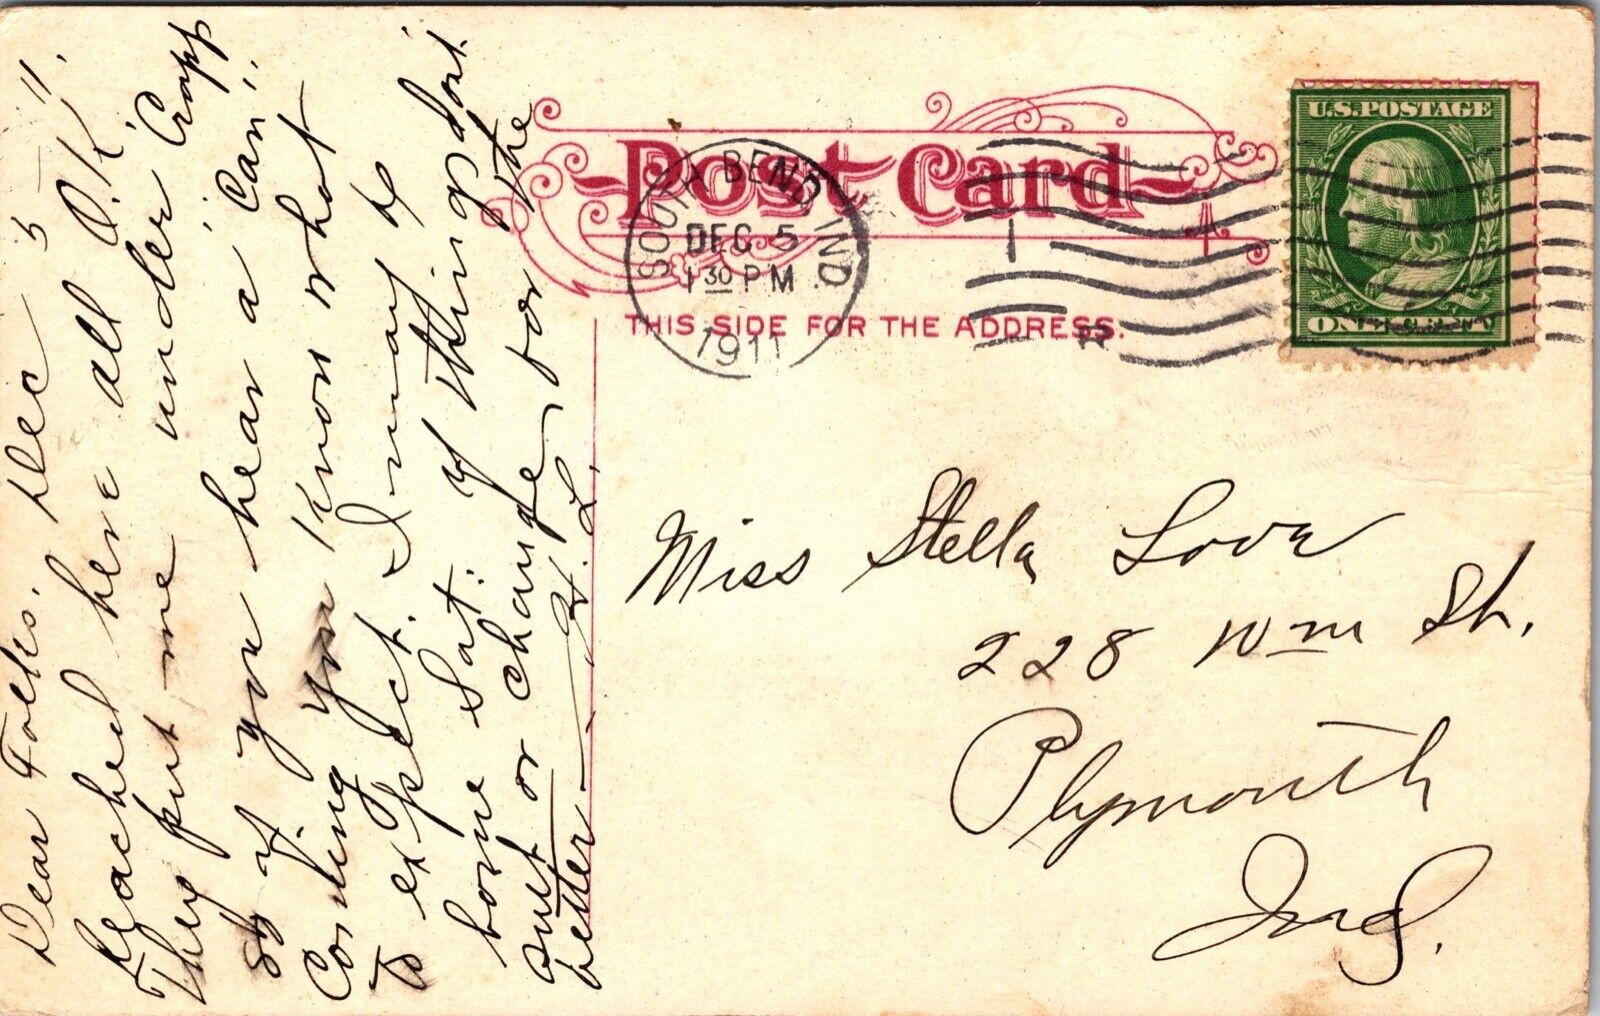 Dear Folks. Dec 5 —
Reached here all O.K.".
They put me under Crapp
so if you hear a "Can"
Coming you know what
to expect. I may be
home Sat: if things don't
suit or change for the
better — H. L.
Post Card
THIS SIDE FOR THE ADDRESS.
SOUTH BEND, IND.
DEC 5
1 30 PM
1911
1
U.S. POSTAGE
ONE CENT
Miss Stella Love
228 Wm St.
Plymouth
Ind.